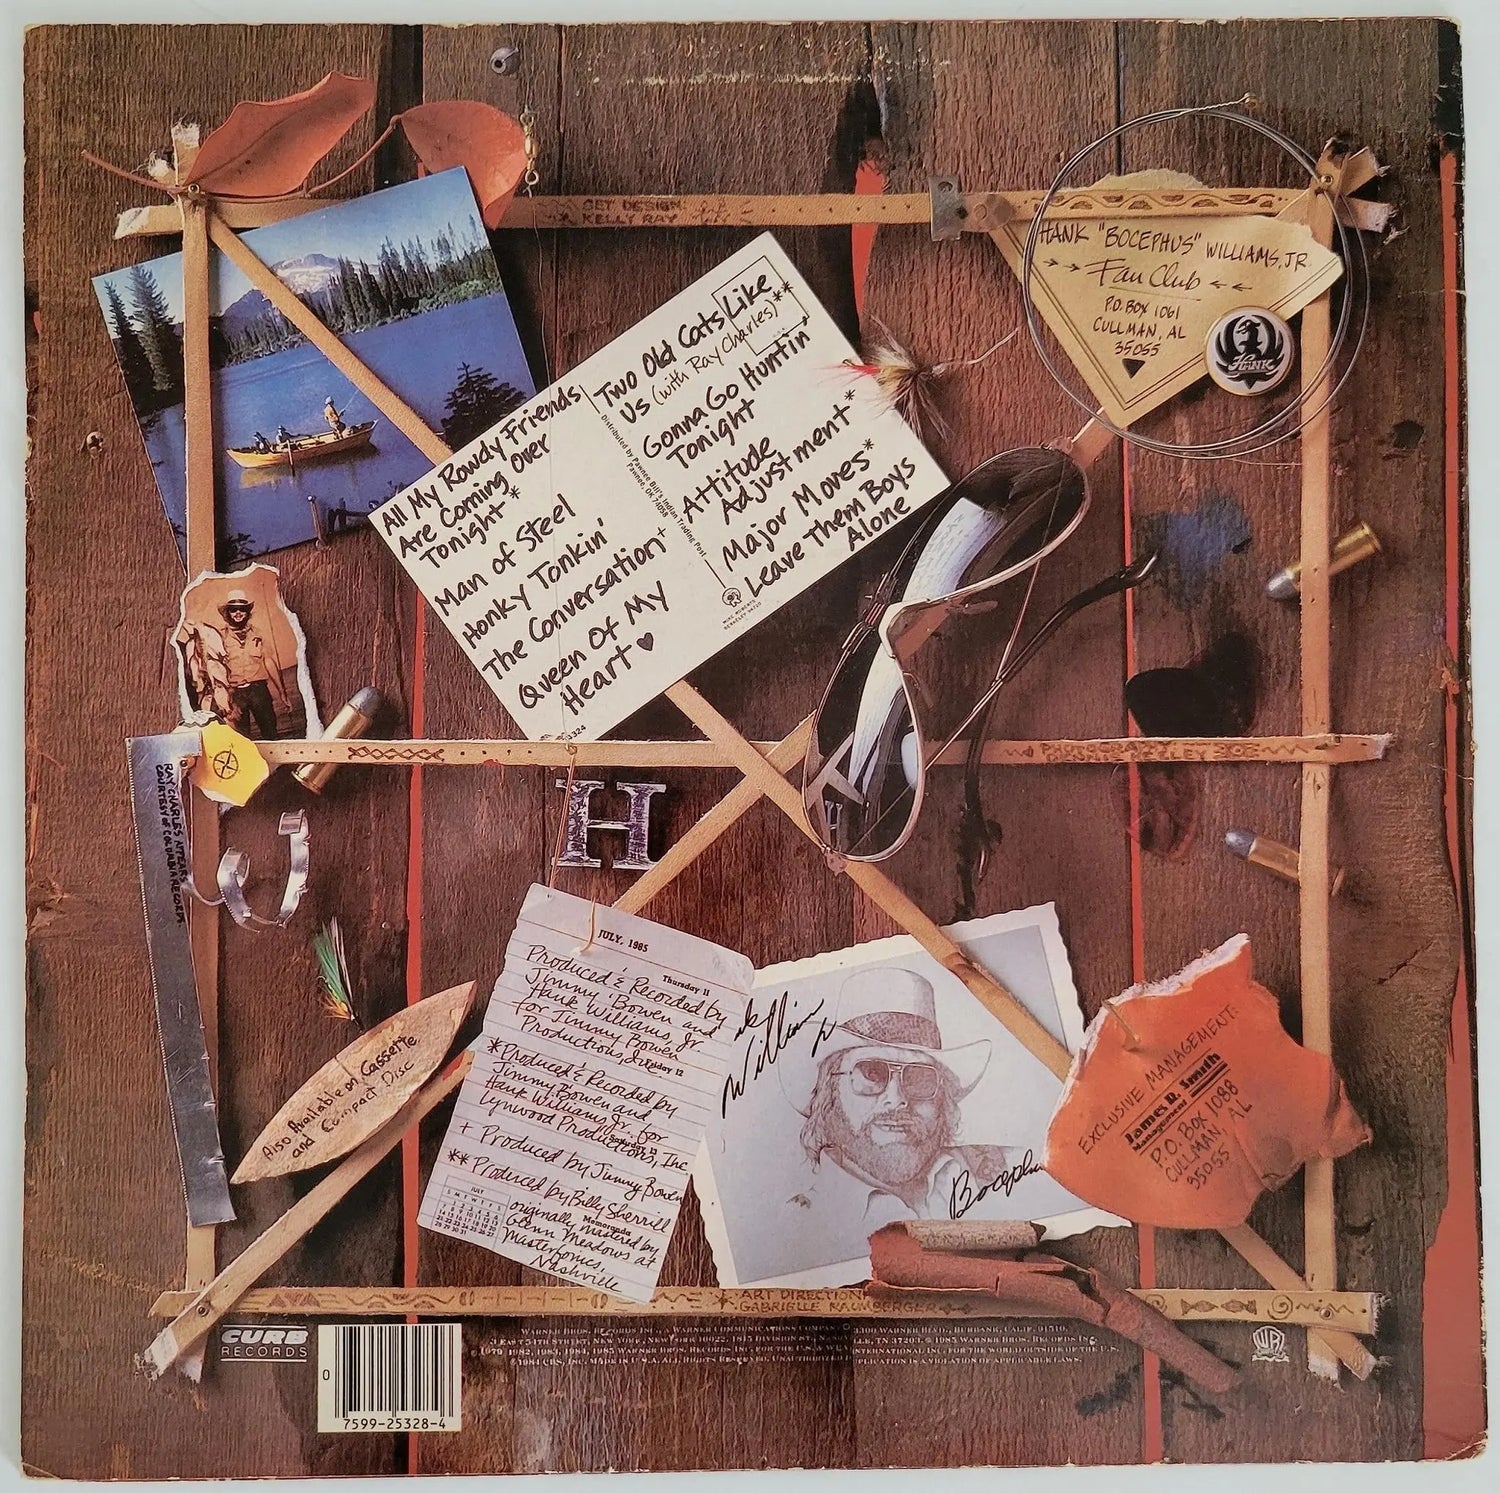 SET DESIGN:
KELLY RAY
HANK "BOCEPHUS" WILLIAMS, JR.
→ → Fan Club ← ←
P.O. BOX 1061
CULLMAN, AL
35055
HANK
All My Rowdy Friends
Are Coming Over
Tonight*
Man of Steel
Honky Tonkin'
The Conversation+
Queen Of My
Heart ♥
Distributed by Pawnee Bill's Indian Trading Post
Pawnee, OK 74058
Two Old Cats Like
Us (with Ray Charles)**
Gonna Go Huntin'
Tonight
Attitude
Adjustment*
Major Moves*
Leave Them Boys
Alone
MIKE ROBERTS
BERKELEY 94720
RAY CHARLES APPEARS
COURTESY OF COLUMBIA RECORDS.
PHOTOGRAPHY
H
JULY, 1985
Thursday 11
Produced & Recorded by
Jimmy Bowen and
Hank Williams, Jr.
for Jimmy Bowen
Productions,
Friday 12
*Produced & Recorded by
Jimmy Bowen and
Hank Williams, Jr. for
Lynwood Productions, Inc
Saturday 13
+ Produced by Jimmy Bowen
** Produced by Billy Sherrill
Memoranda
originally Mastered by
Glenn Meadows at
Masterfonics,
Nashville
JULY
S M T W T F S
1 2 3 4 5 6
7 8 9 10 11 12 13
14 15 16 17 18 19 20
21 22 23 24 25 26 27
28 29 30 31
Also Available on Cassette
and Compact Disc
Williams Jr
Bocephus
EXCLUSIVE MANAGEMENT:
James R. Smith
Management
P.O. BOX 1088
CULLMAN, AL
35055
ART DIRECTION
GABRIELLE RAUMBERGER
CURB
RECORDS
0
7599-25328-4
WARNER BROS. RECORDS INC., A WARNER COMMUNICATIONS COMPANY 3300 WARNER BLVD., BURBANK, CALIF. 91510.
3 EAST 54TH STREET, NEW YORK, NEW YORK 10022. 1815 DIVISION ST., NASHVILLE, TN. 37203. © 1985 WARNER BROS. RECORDS INC.